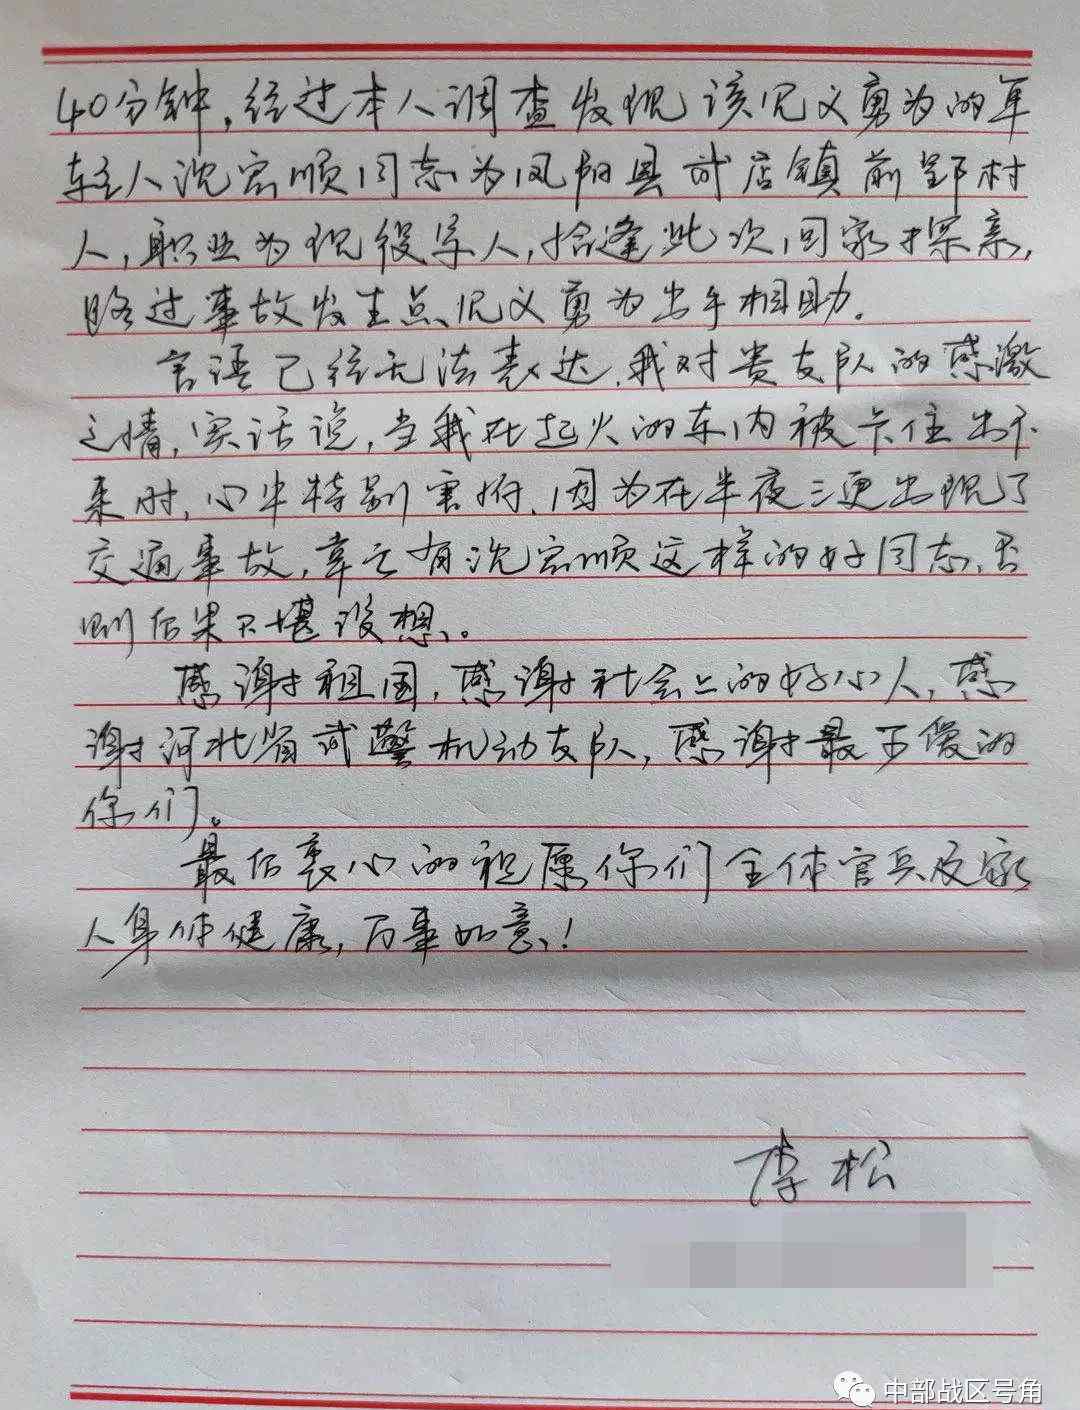 40分钟,经过本人调查发现该见义勇为的年
轻人沈宏顺同志为凤阳县武店镇前郢村
人,职业为现役军人,恰逢此次回家探亲,
路过事故发生点见义勇为出手相助。
言语已经无法表达,我对贵支队的感激
之情,实话说,当我在起火的车内被卡住出不
来时,心里特别害怕,因为在半夜三更出现了
交通事故,幸亏有沈宏顺这样的好同志,否
则后果不堪设想。
感谢祖国,感谢社会上的好心人,感
谢河北省武警机动支队,感谢最可爱的
你们。
最后衷心的祝愿你们全体官兵及家
人身体健康,万事如意!
李松
中部战区号角